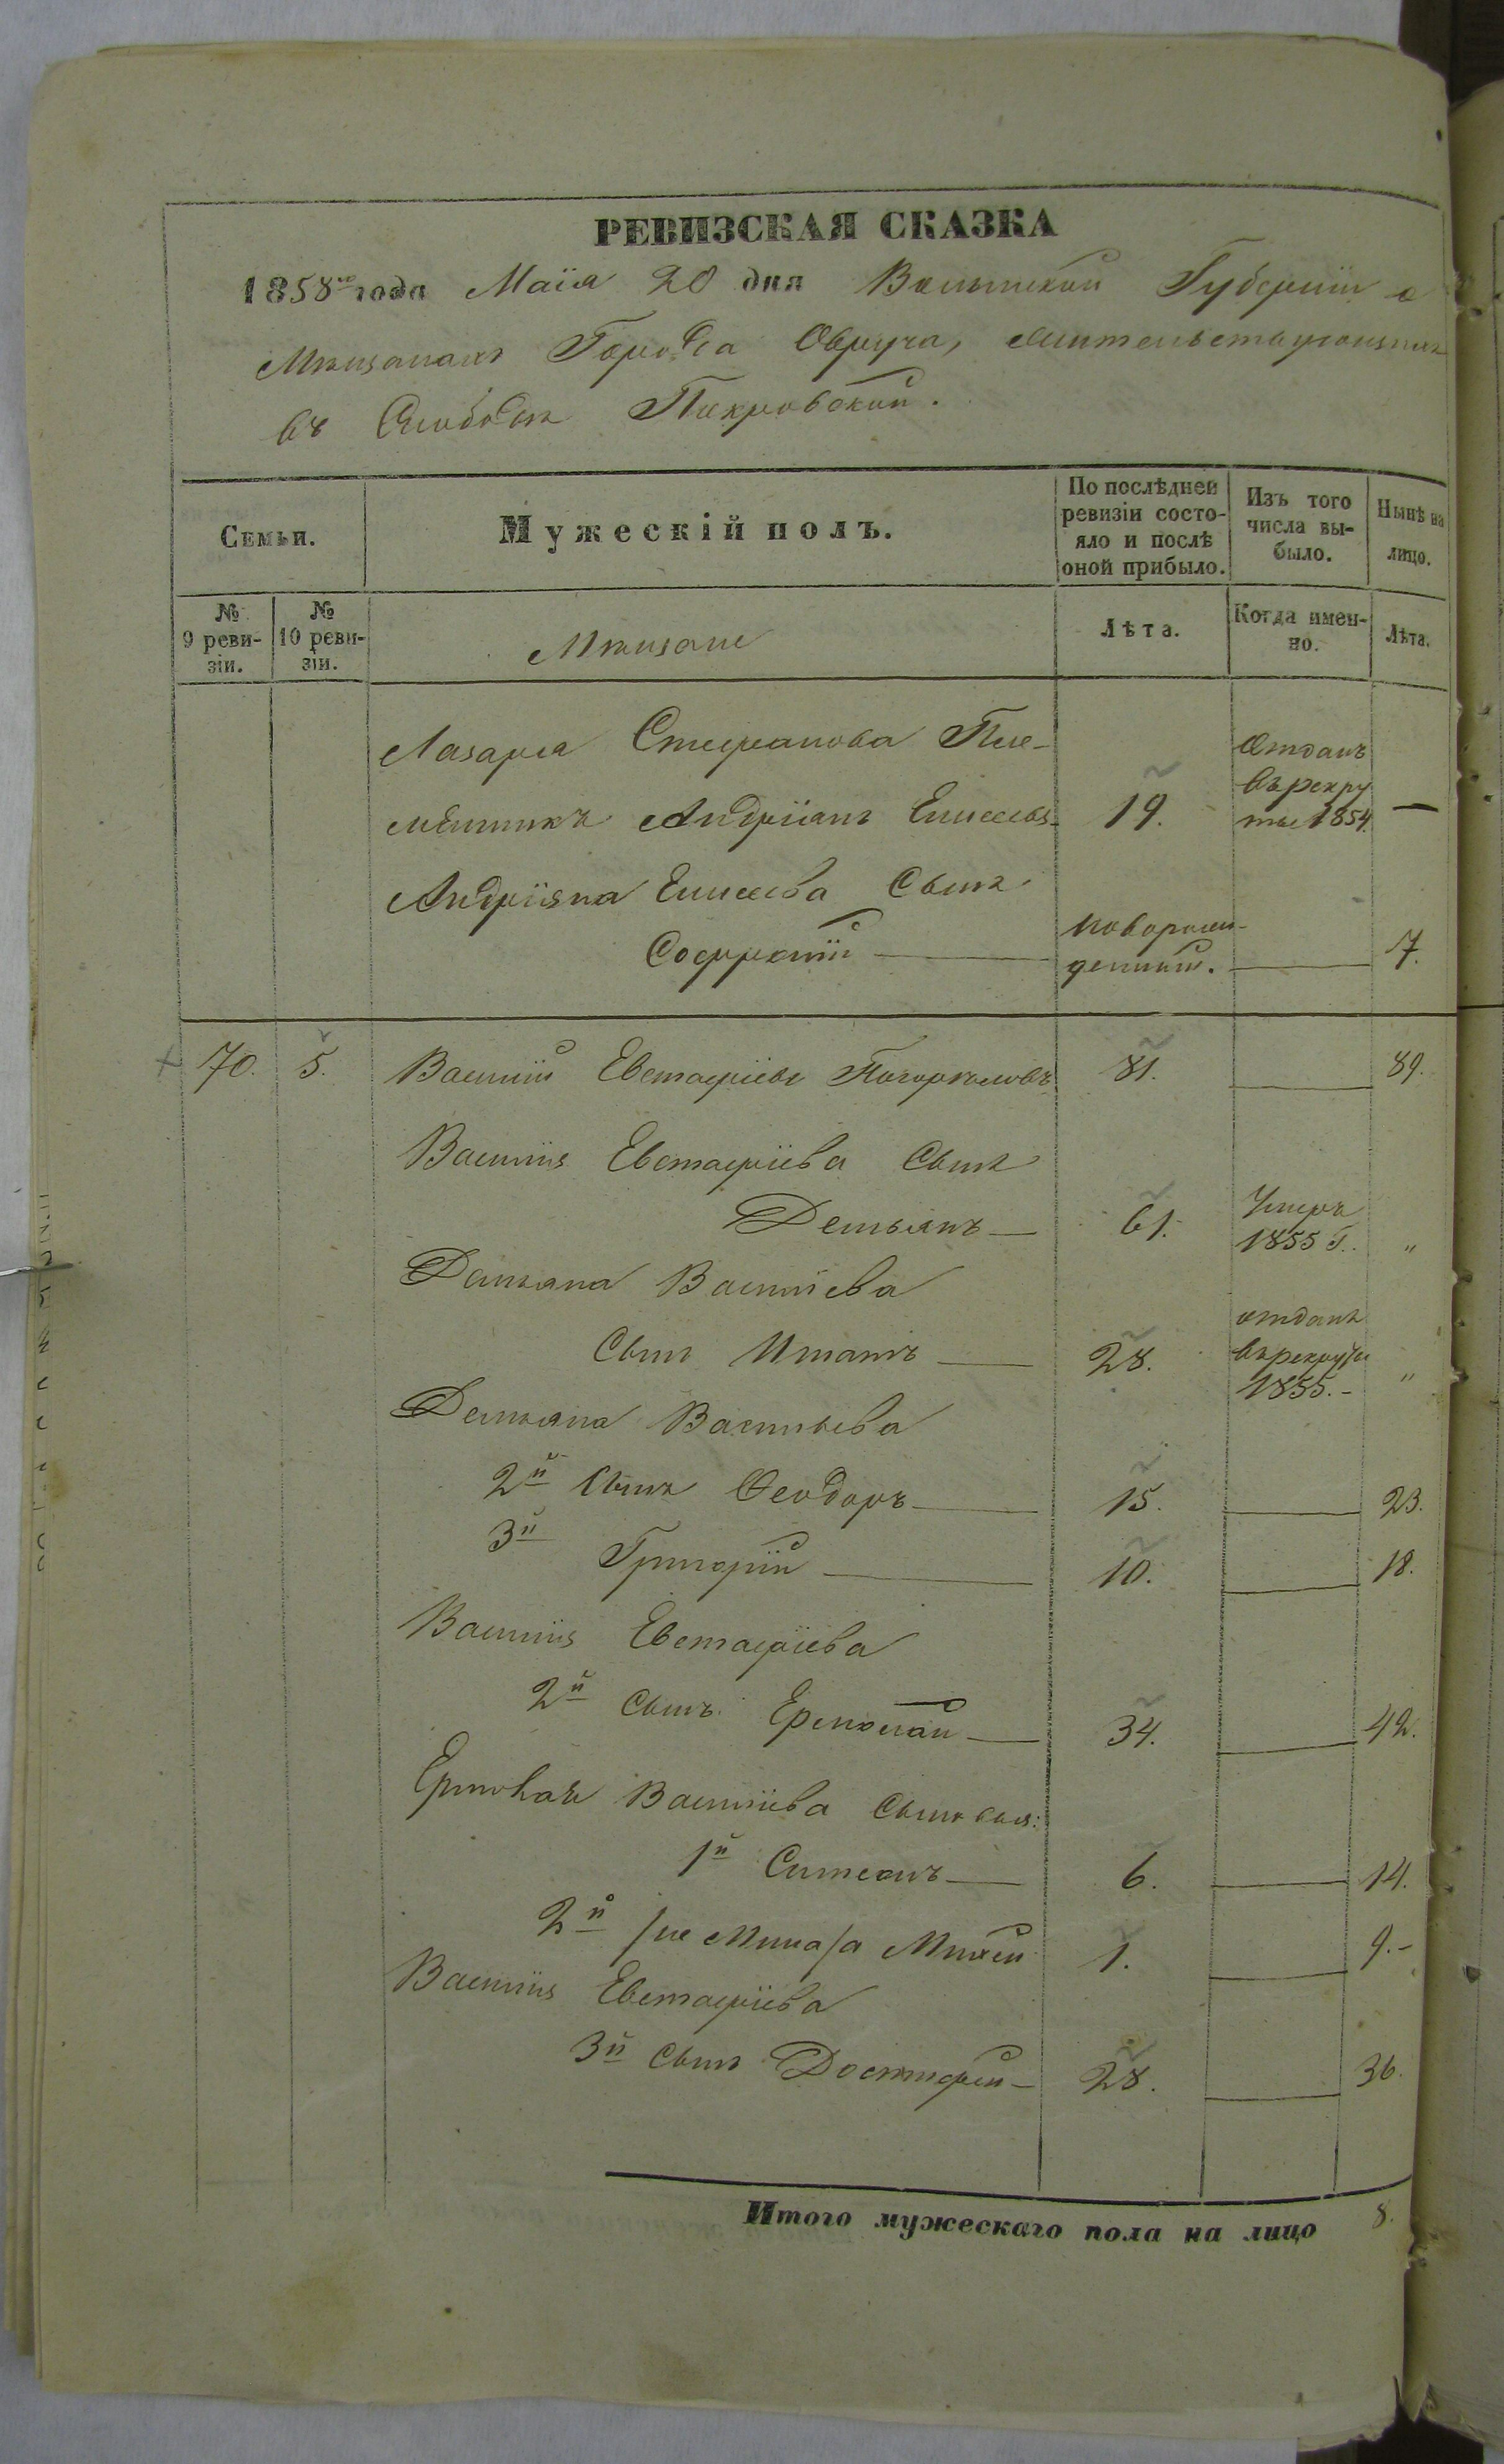 РЕВИЗСКАЯ СКАЗКА
1858го года Маія 20 дня Волынской Губерніи о
Мѣщанахъ Города Овруча, жительствующихъ
въ Слободѣ Покровской.
Семьи.
Мужескій полъ.
По послѣдней ревизіи состояло и послѣ оной прибыло.
Изъ того числа выбыло.
Нынѣ на лицо.
№ 9 ревизіи.
№ 10 ревизіи.
Мѣщане
Лѣта.
Когда именно.
Лѣта.
Лазаря Стефанова Пле-
мѣнникъ Андріанъ Елисеевъ 19. Отданъ въ рекруты 1854. —
Андріяна Елисеева Сынъ
Софроній новорожденный. 7.
70. 5. Василій Евстафіевъ 81. 89.
Василія Евстафіева Сынъ
Демьянъ 61. Умеръ 1855 г. „
Демьяна Василіева
Сынъ Игнатъ 28. отданъ въ рекруты 1855. „
Демьяна Васильева
2й Сынъ Феодоръ 15. 23.
3й Григорій 10. 18.
Василія Евстафіева
2й Сынъ Ермолай 34. 42.
Ермолая Василіева Сыновья:
1й Симеонъ 6. 14.
2й /не Мина/а Михей 1. 9.
Василія Евстафіева
3й Сынъ Досифей 28. 36.
Итого мужескаго пола на лицо 8.